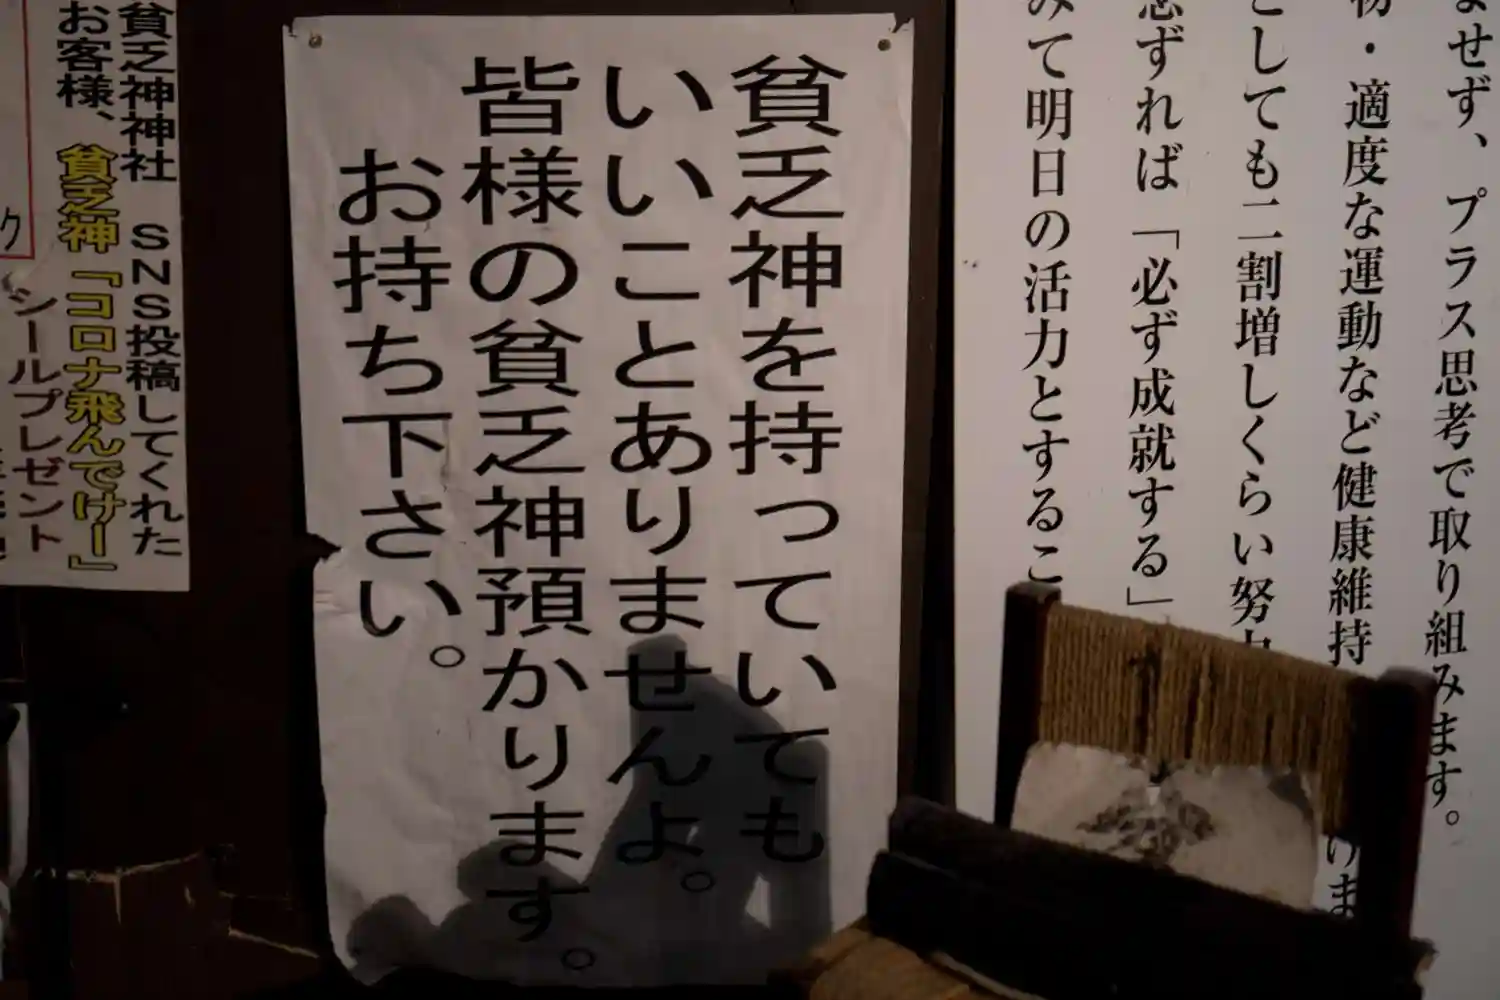 ませず、プラス思考で取り組みます。
物・適度な運動など健康維持
としても二割増しくらい努力
思ずれば「必ず成就する」
みて明日の活力とするこ
けま
貧乏神を持っていても
いいことありませんよ。
皆様の貧乏神預かります。
お持ち下さい。
貧乏神神社　SNS投稿してくれた
お客様、貧乏神『コロナ飛んでけー』
シールプレゼント
ク